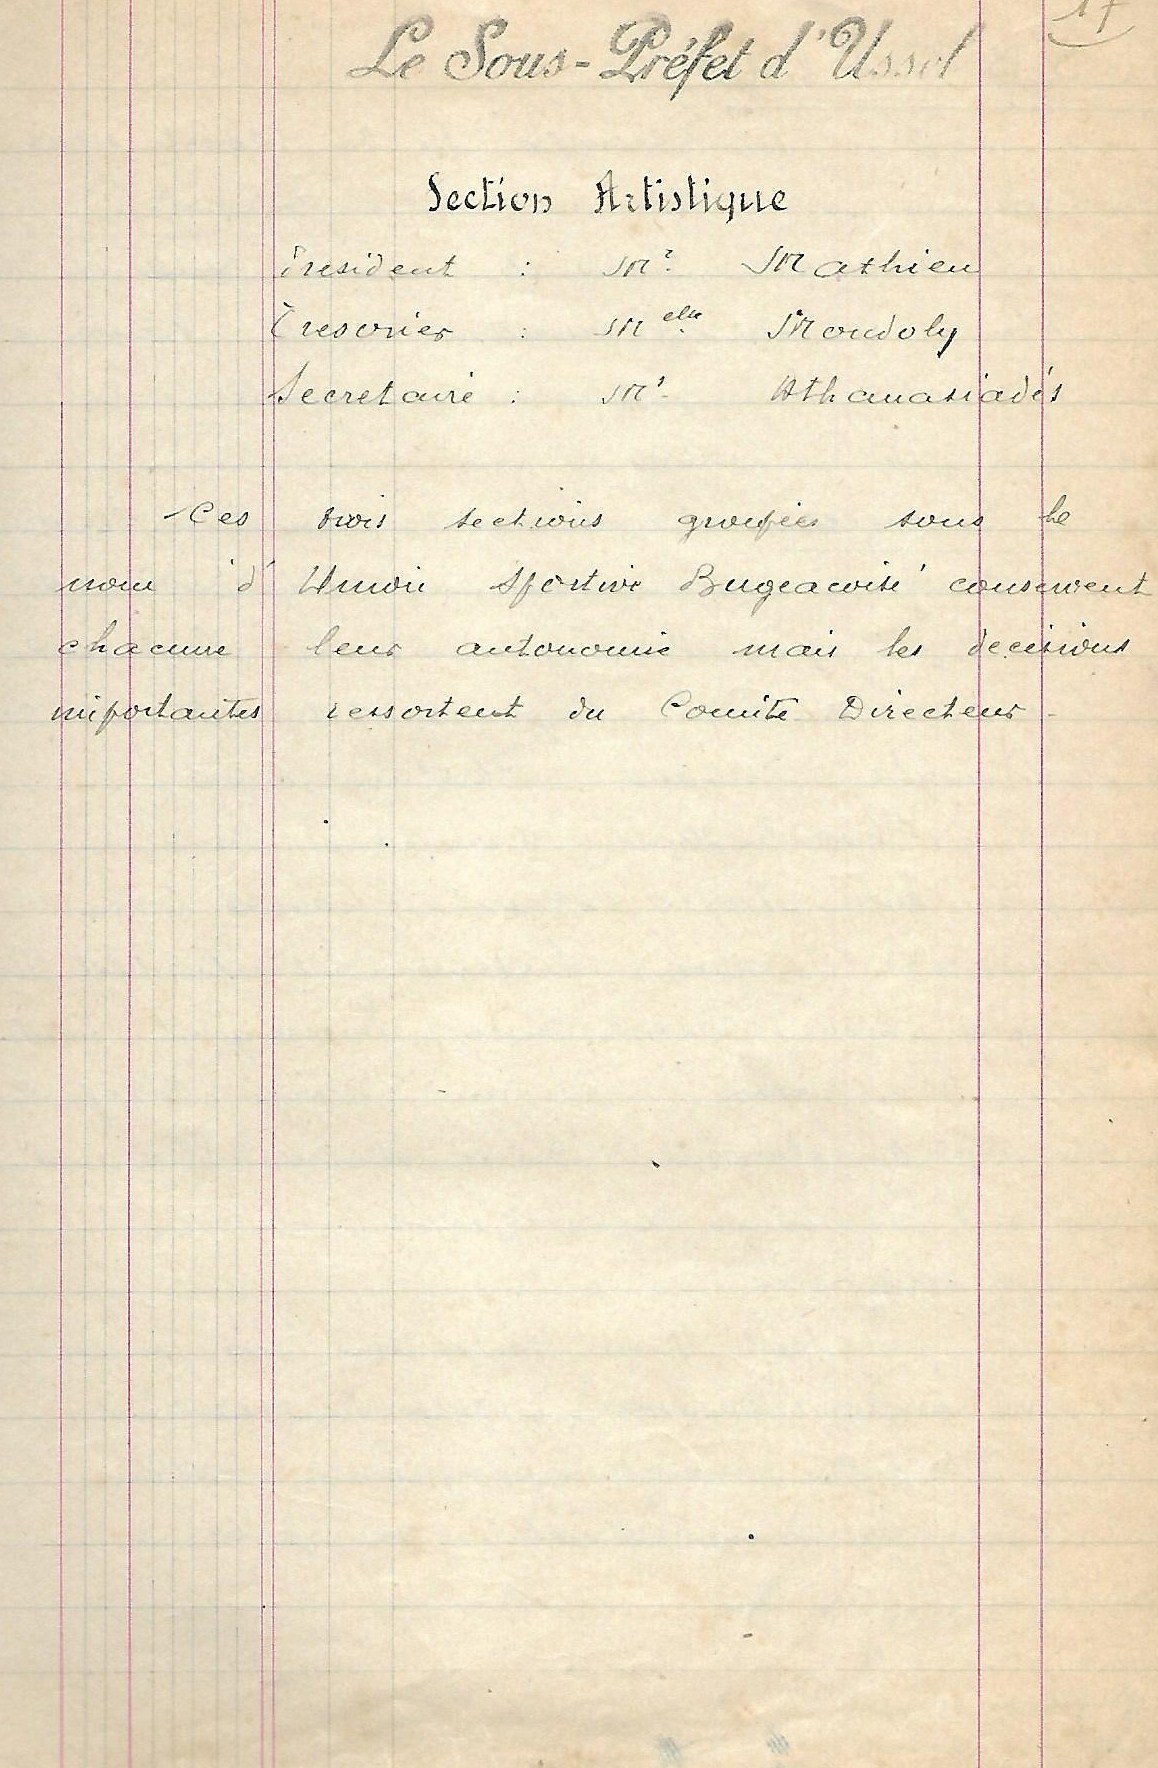 17
Le Sous-Préfet d'Ussel
Section Artistique
President : Mr. Mathieu
Tresorier : Melle Moudoly
Secretaire : Mr. Athanasiadés
Ces trois sections groupées sous le
nom d'Union Sportive Bugeacoise conservent
chacune leur autonomie mais les decisions
importantes ressortent du Comité Directeur.